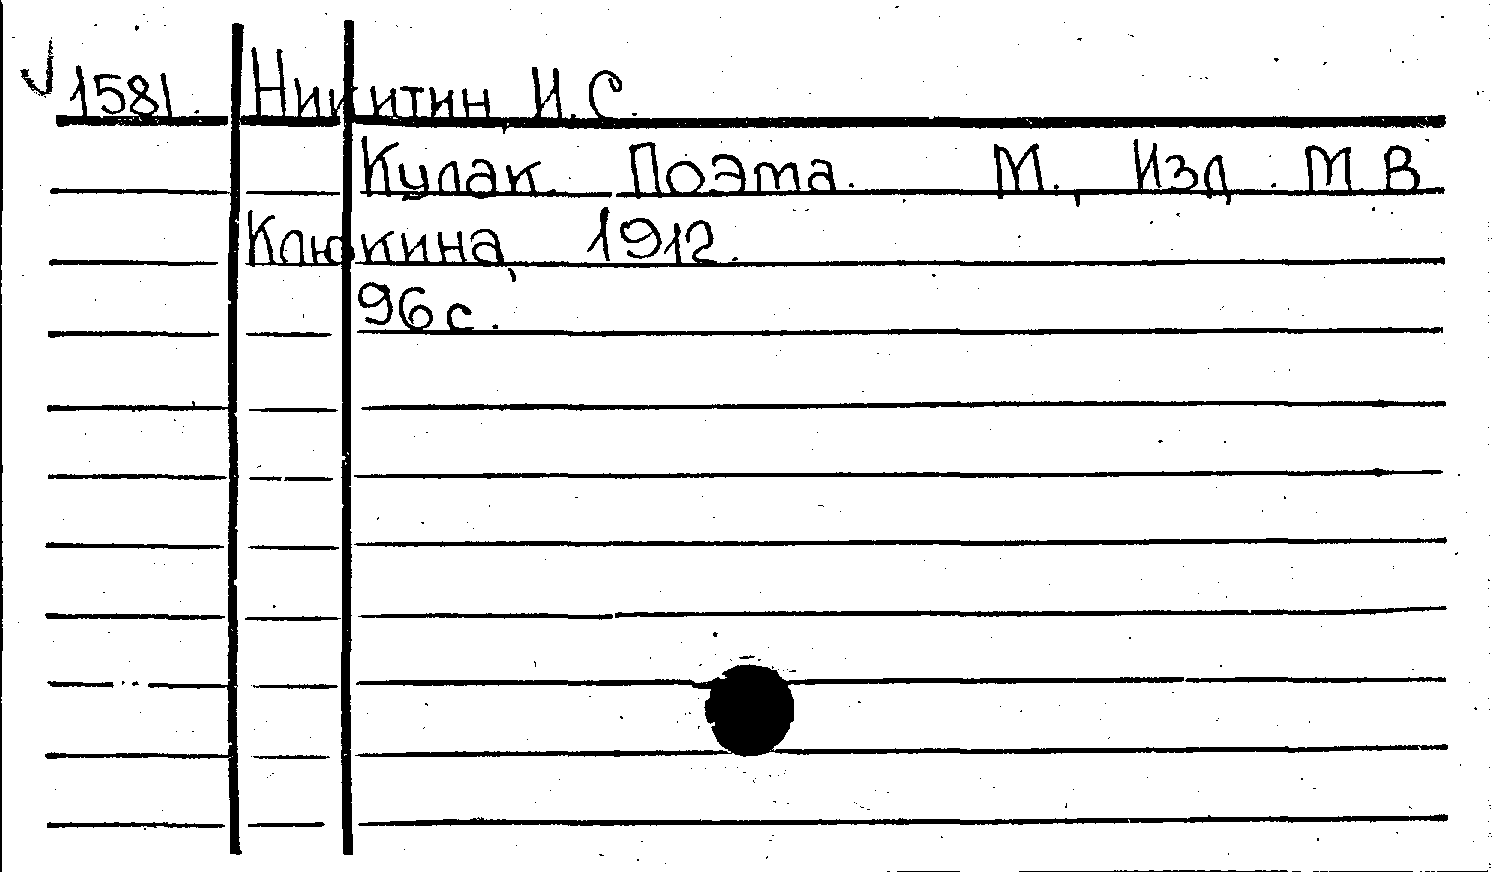 1581. Никитин И.С.
Кулак. Поэма. М., Изд. М.В.
Клюкина, 1912.
96 с.